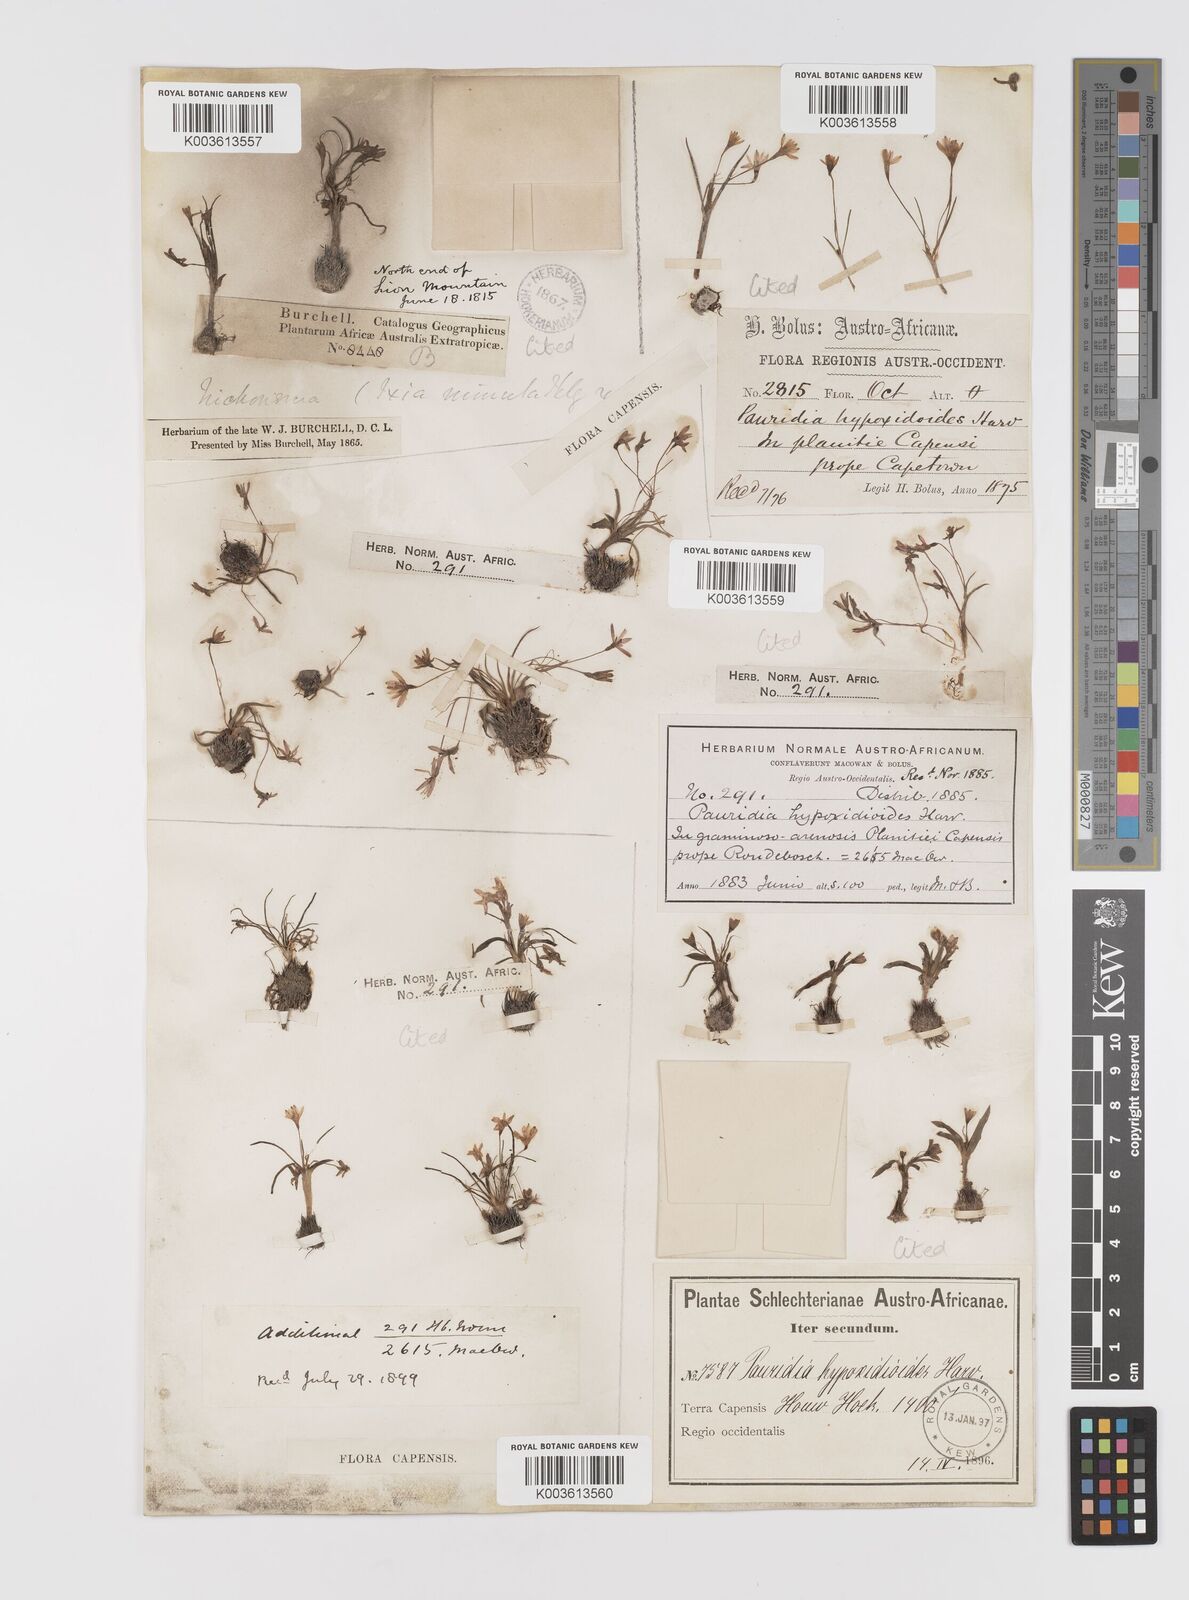 ROYAL BOTANIC GARDENS KEW
K003613557
North end of
Lion Mountain
June 18. 1815
Burchell. Catalogus Geographicus
Plantarum Africæ Australis Extratropicæ.
No. 8448
B
HERBARIUM HOOKERIANUM
1867
Cited
(Ixia minuta
Herbarium of the late W. J. BURCHELL, D. C. L.
Presented by Miss Burchell, May 1865.
FLORA CAPENSIS.
HERB. NORM. AUST. AFRIC.
No. 291
ROYAL BOTANIC GARDENS KEW
K003613558
Cited
H. Bolus: Austro-Africanæ.
FLORA REGIONIS AUSTR.-OCCIDENT.
No. 2815 FLOR. Oct ALT.
Pauridia hypoxidoides Harv
In planitie Capensi
prope Capetown
Recd 7/76 Legit H. Bolus, Anno 1875
ROYAL BOTANIC GARDENS KEW
K003613559
Cited
HERB. NORM. AUST. AFRIC.
No. 291.
HERBARIUM NORMALE AUSTRO-AFRICANUM.
CONFLAVERUNT MACOWAN & BOLUS.
Regio Austro-Occidentalis. Recd. Nov. 1885.
No. 291. Distrib. 1885.
Pauridia hypoxidioides Harv.
In graminoso-arenosis Planitiei Capensis
prope Rondebosch. = 2615 MacOw.
Anno 1883 Junio alt. s. 100 ped., legit M. & B.
HERB. NORM. AUST. AFRIC.
No. 291.
Cited
Additional 291 Hb. Norm
2615. MacOw.
Recd July 29. 1899
FLORA CAPENSIS.
ROYAL BOTANIC GARDENS KEW
K003613560
Cited
Plantae Schlechterianae Austro-Africanae.
Iter secundum.
No. 7587 Pauridia hypoxidioides Harv.
Terra Capensis Houw Hoek. 1400'
Regio occidentalis
14. IV. 1896.
ROYAL GARDENS
13. JAN. 97
KEW
inches
Don Williams
M000827
Kew
Royal Botanic Gardens
copyright reserved
0 1 2 3 4 5 6 7 8 9 10
cm